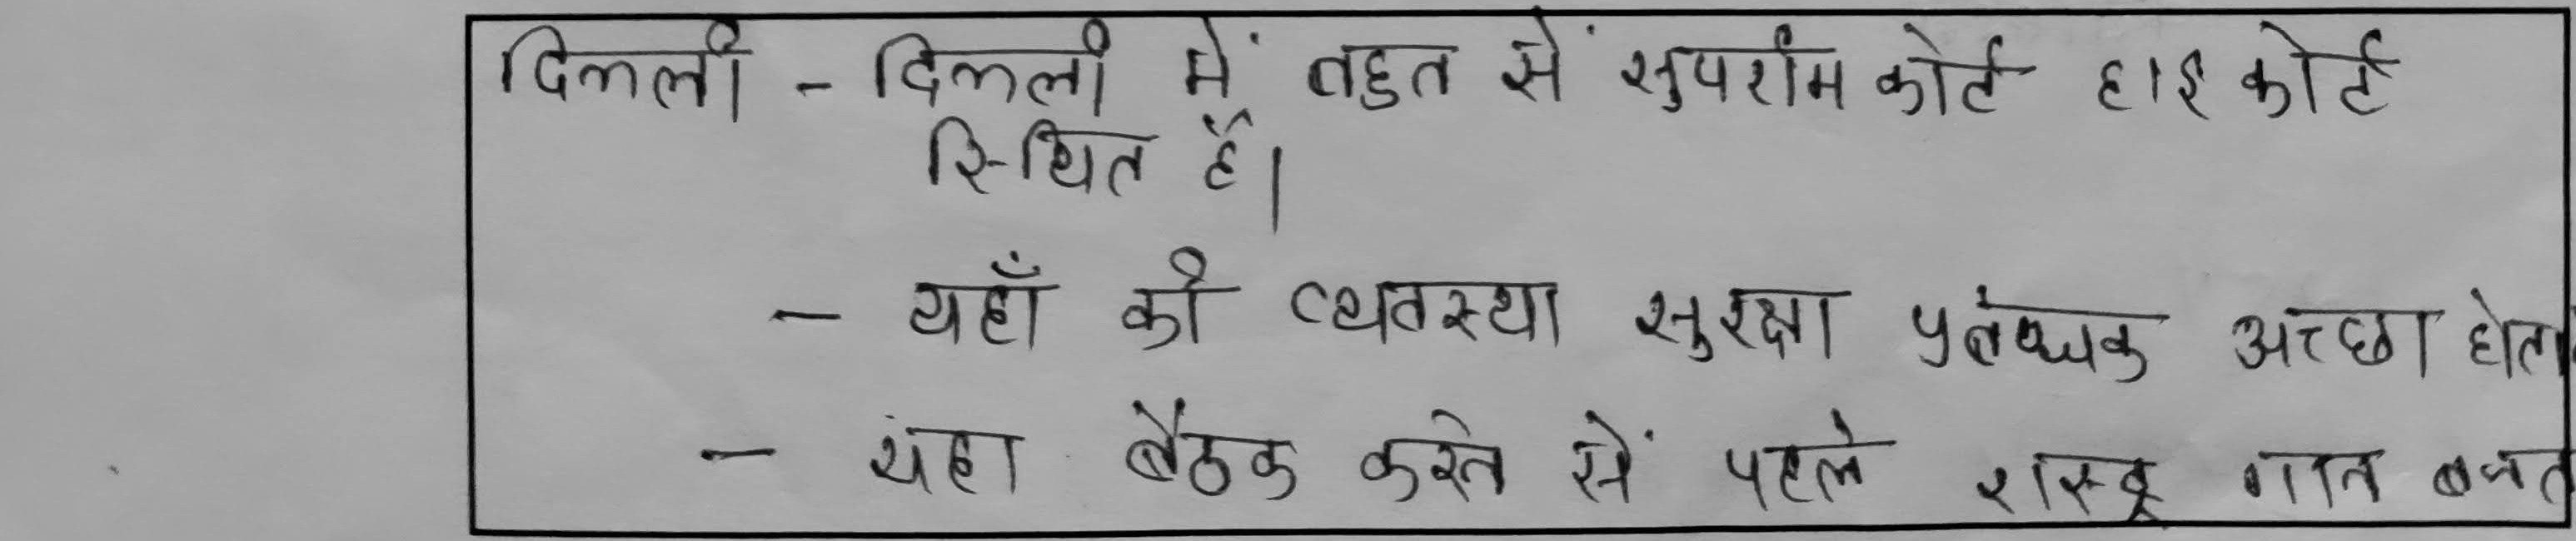 दिल्ली - दिल्ली में बहुत सें सुपरीम कोर्ट हाइ कोर्ट
स्थित हैं।
- यहाँ की व्यवस्था सुरक्षा प्रबंधक अच्छा होता
- यंहा बैठक करने सें पहले गान